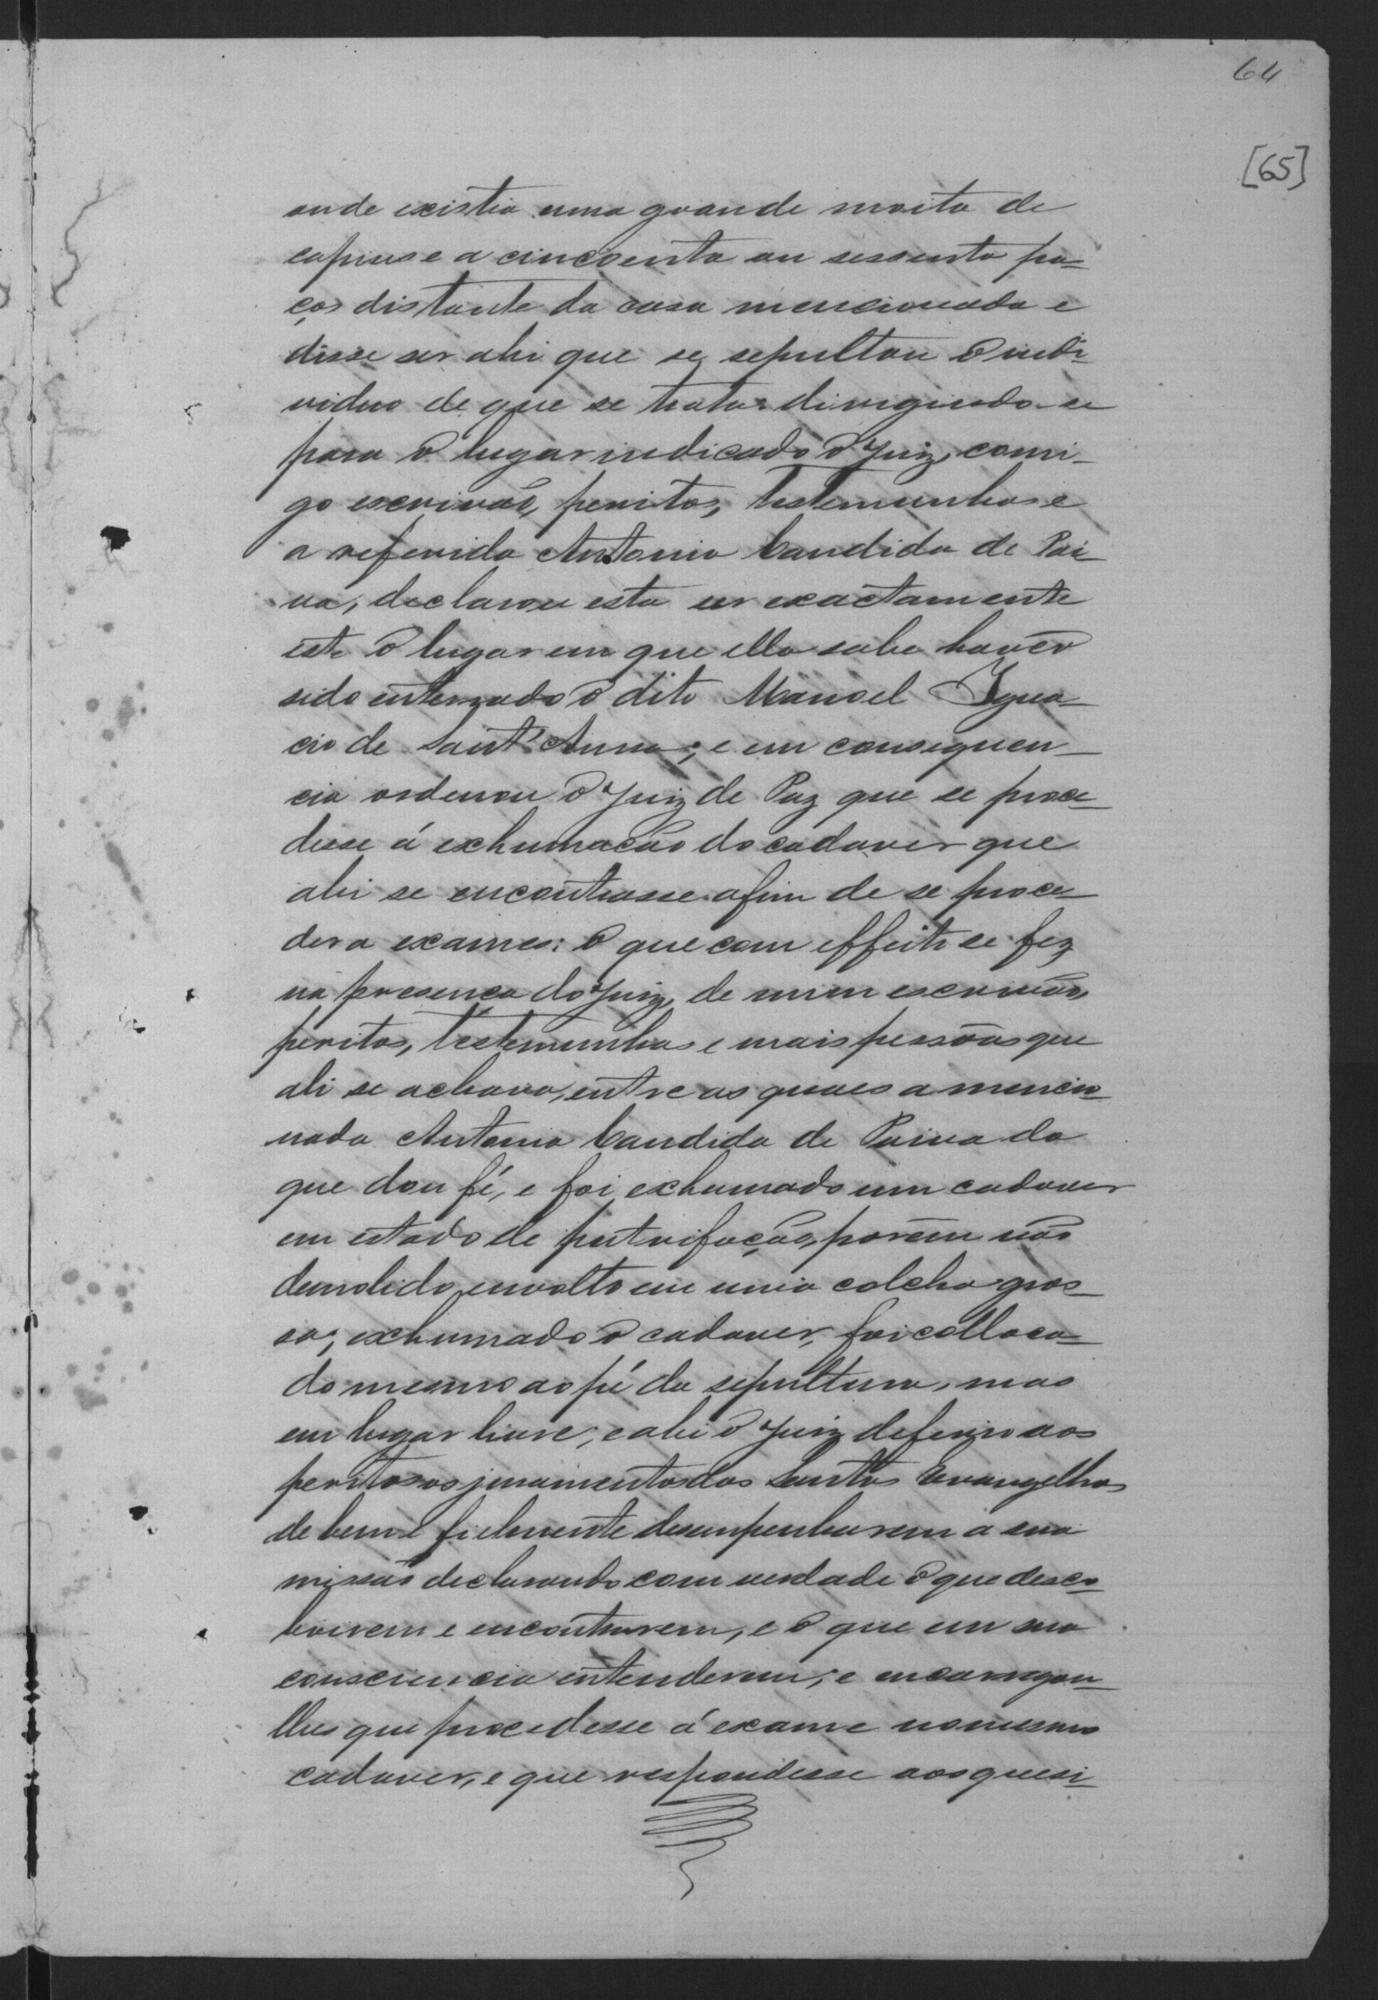 64
[65]
onde existia uma grande moita de
capim e a cincoenta ou sessenta pa-
ços distante da casa mencionada e
disse ser ahi que se sepultou o indi-
viduo de que se trata: dirigindo-se
para o lugar indicado o Juiz, comi-
go escrivão, peritos, testemunhas e
a referida Antonia Candida de Pai
va, declarou esta ser exactamente
este o lugar em que ella sabe haver
sido enterrado o dito Manoel Igna-
cio de Sant'Anna; e em consequen-
cia ordenou o Juiz de Paz que se proce-
desse á exhumação do cadaver que
ahi se encontrasse afim de se proce-
der a exames: o que com effeito se fez
na presença do Juiz, de mim escrivão,
peritos, testemunhas e mais pessôas que
ahi se achava, entre as quaes a mencio-
nada Antonia Candida de Paiva do
que dou fé, e foi exhumado um cadaver
em estado de putrifação, porém não
demolido, envolto em uma colcha gros-
sa; exhumado o cadaver, foi colloca-
do mesmo ao pé da sepultura, mas
em lugar livre; e ahi o Juiz deferio aos
peritos os juramentos dos Santos Evangelhos
de bem e fielmente desempenharem a sua
missão declarando com verdade o que desco-
brirem e encontrarem, e o que em sua
consciencia entenderem; e encarregou-
lhes que procedesse á exame no mesmo
cadaver, e que respondesse aos quesi-